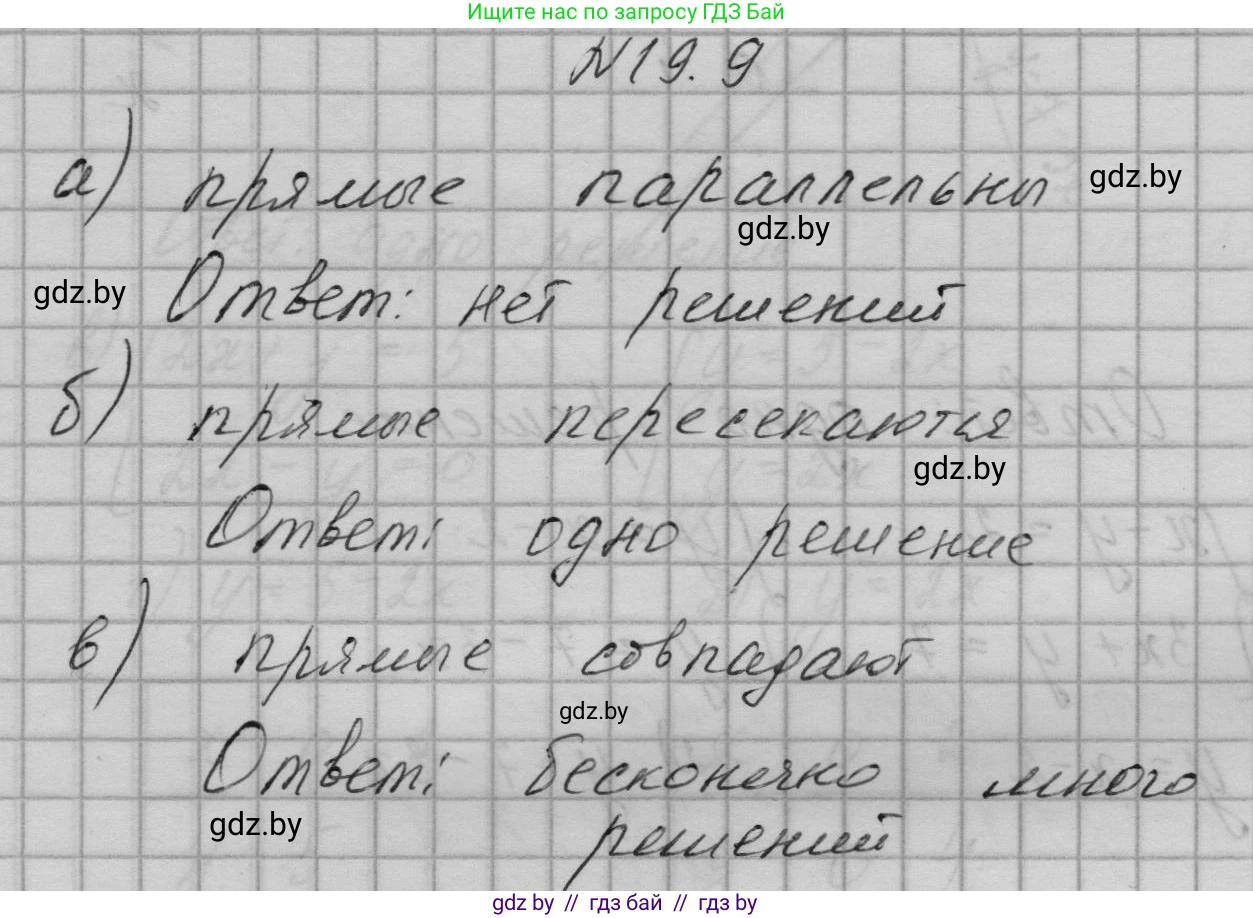 Ищите нас по запросу ГДЗ Бай
N19.9
а) прямые параллельны
gdz.by
gdz.by
gdz.by
Ответ: нет решений
б) прямые пересекаются
gdz.by
Ответ: одно решение
в) прямые совпадают
gdz.by
Ответ: бесконечно много
gdz.by
решений
gdz by // гдз бай // гдз by